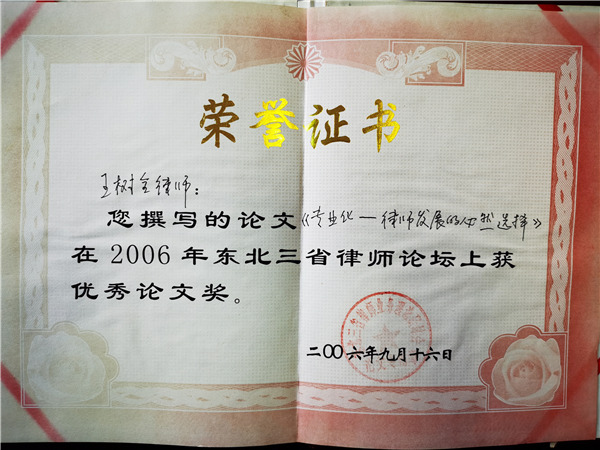 荣誉证书
王树全律师:
您撰写的论文《专业化—律师发展的必然选择》
在2006年东北三省律师论坛上获
优秀论文奖。
二〇〇六年九月十六日